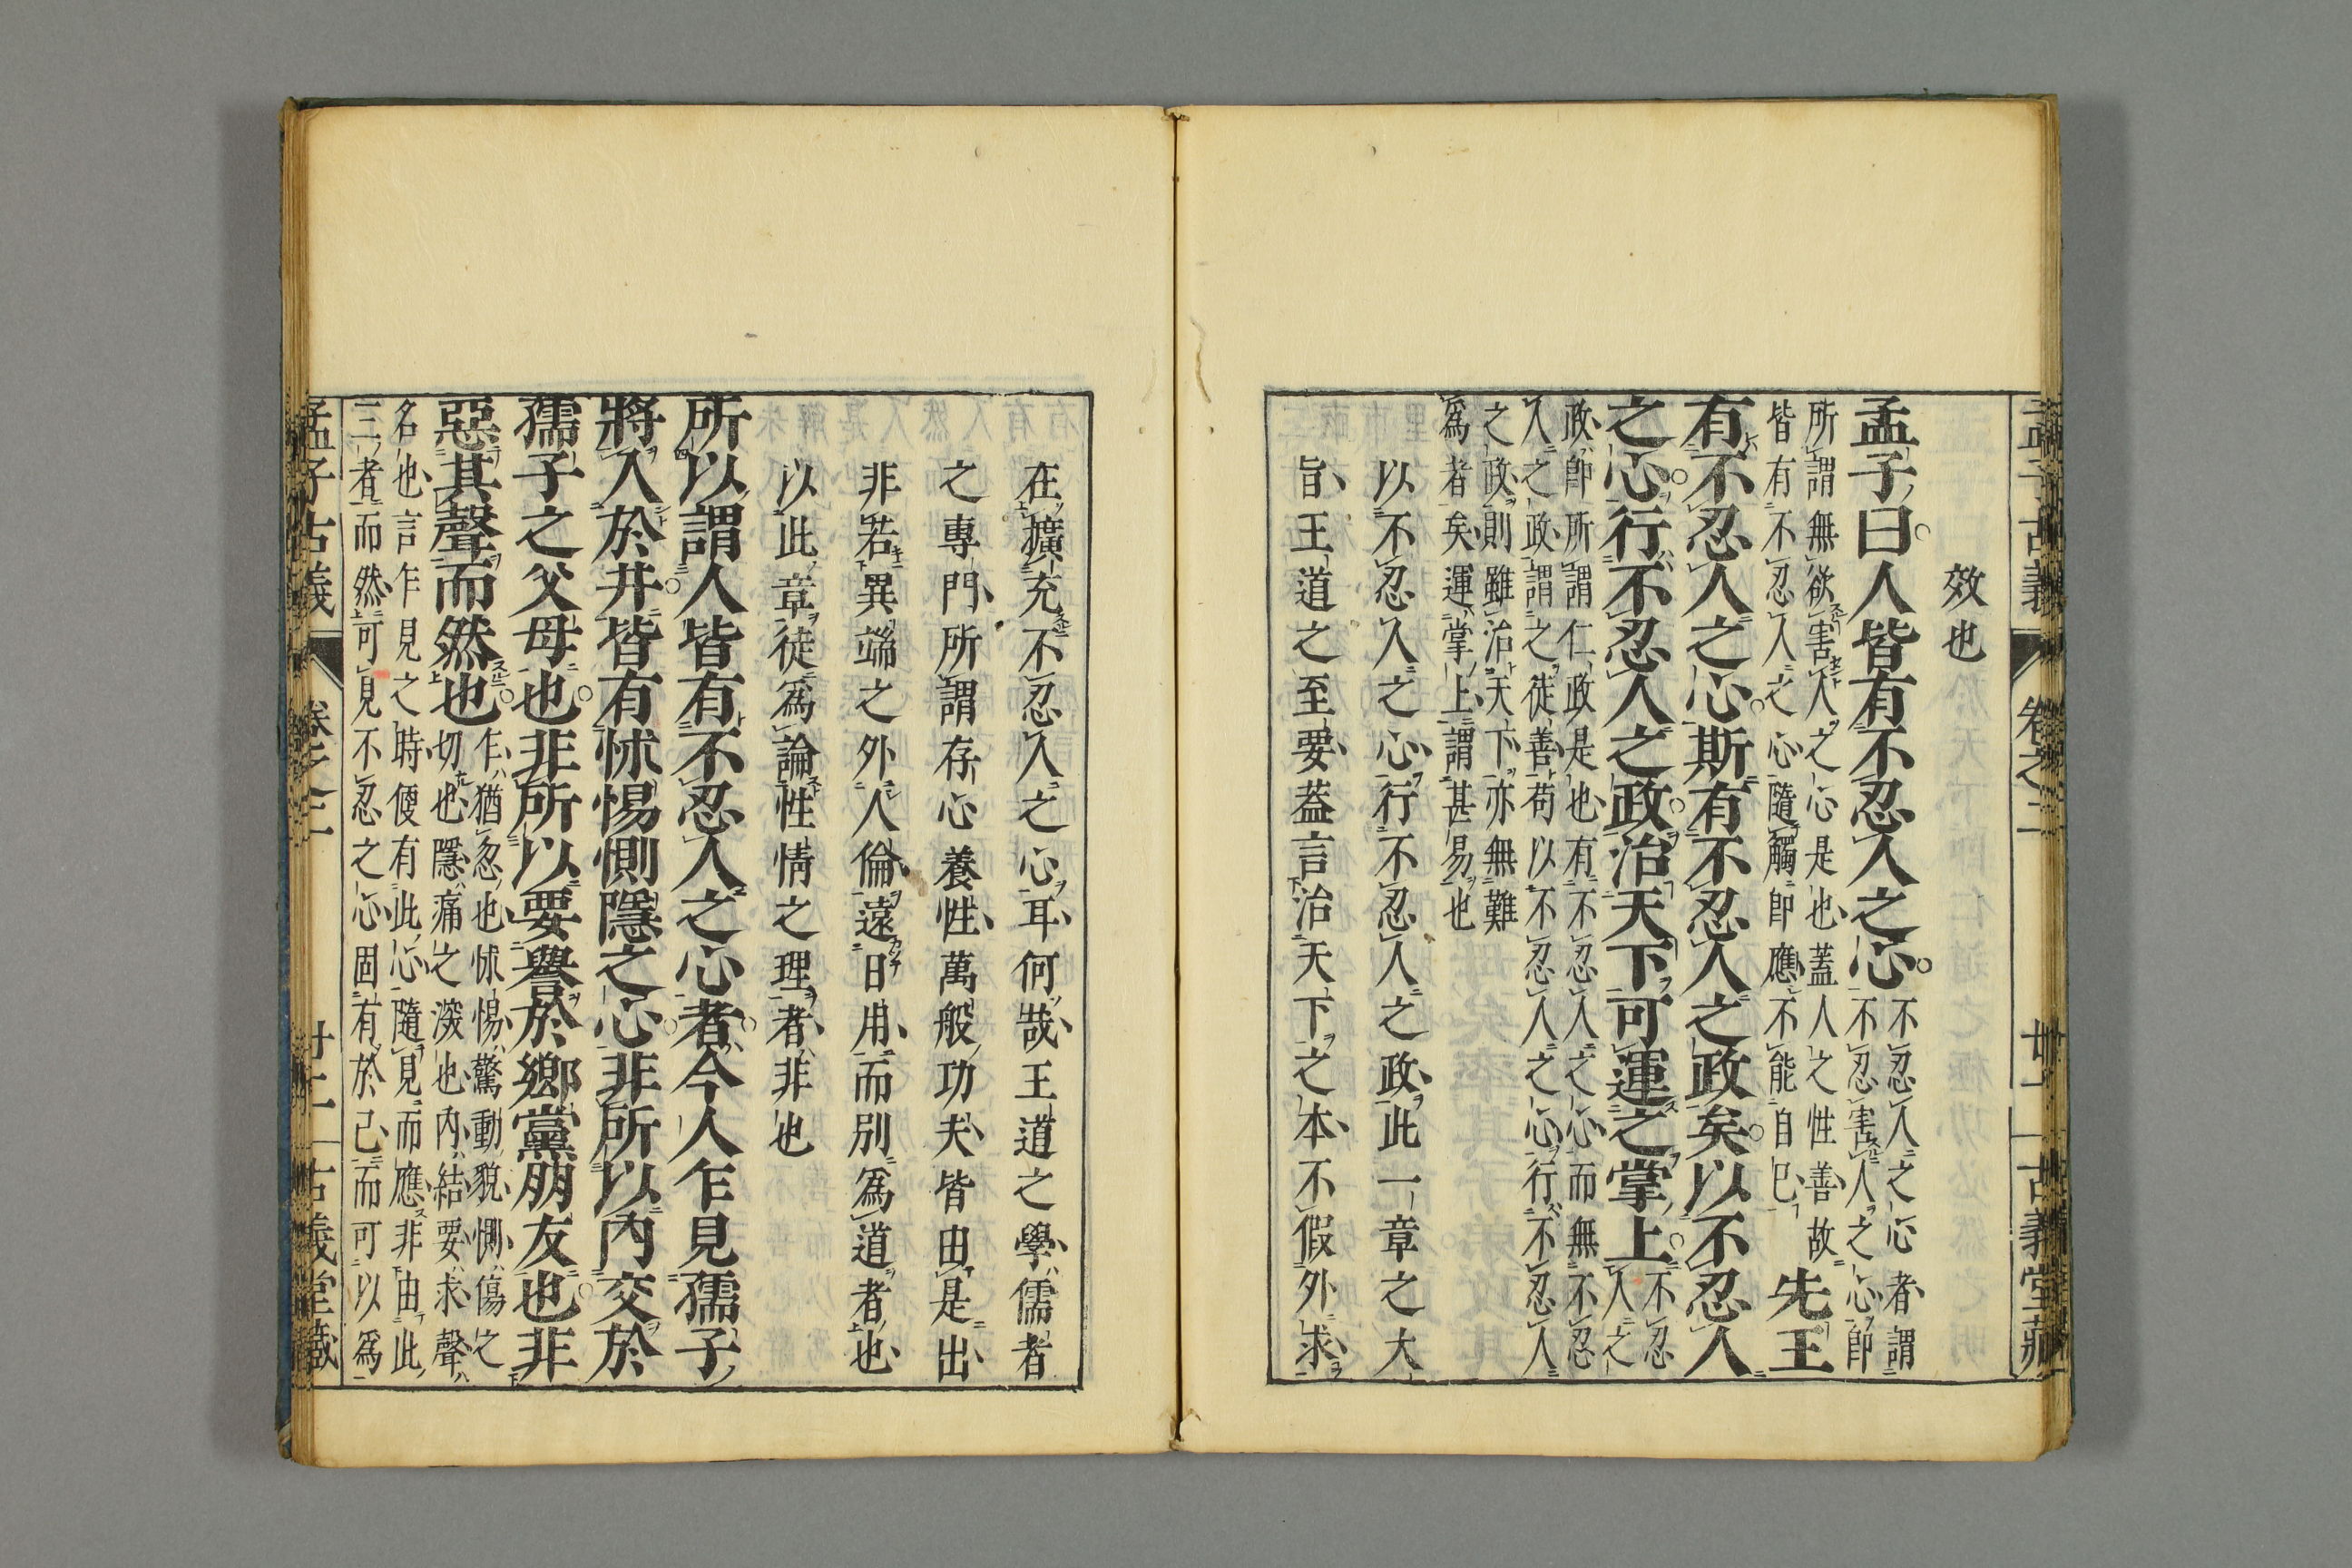 效也
孟子曰人皆有不忍人之心
不忍人之心者謂
不忍害人之心即
所謂無欲害人之心是也蓋人之性善故
皆有不忍人之心隨觸即應不能自已
先王
有不忍人之心斯有不忍人之政矣以不忍人
之心行不忍人之政治天下可運之掌上
不忍
人之
政即所謂仁政是也有不忍人之心而無不忍
人之政謂之徒善苟以不忍人之心行不忍人
之政則雖治天下亦無難
爲者矣運掌上謂甚易也
以不忍人之心行不忍人之政此一章之大
旨王道之至要蓋言治天下之本不假外求
孟子古義
卷之二
廿一
古義堂藏
在擴充不忍人之心耳何哉王道之學儒者
之專門所謂存心養性萬般功夫皆由是出
非若異端之外人倫遠日用而別爲道者也
以此章徒爲論性情之理者非也
所以謂人皆有不忍人之心者今人乍見孺子
將入於井皆有怵惕惻隱之心非所以內交於
孺子之父母也非所以要譽於鄉黨朋友也非
惡其聲而然也
乍猶忽也怵惕驚動貌惻傷之
切也隱痛之深也內結要求聲
名也言乍見之時便有此心隨見而應非由此
三者而然可見不忍之心固有於己而可以爲
孟子古義
卷之二
廿二
古義堂藏